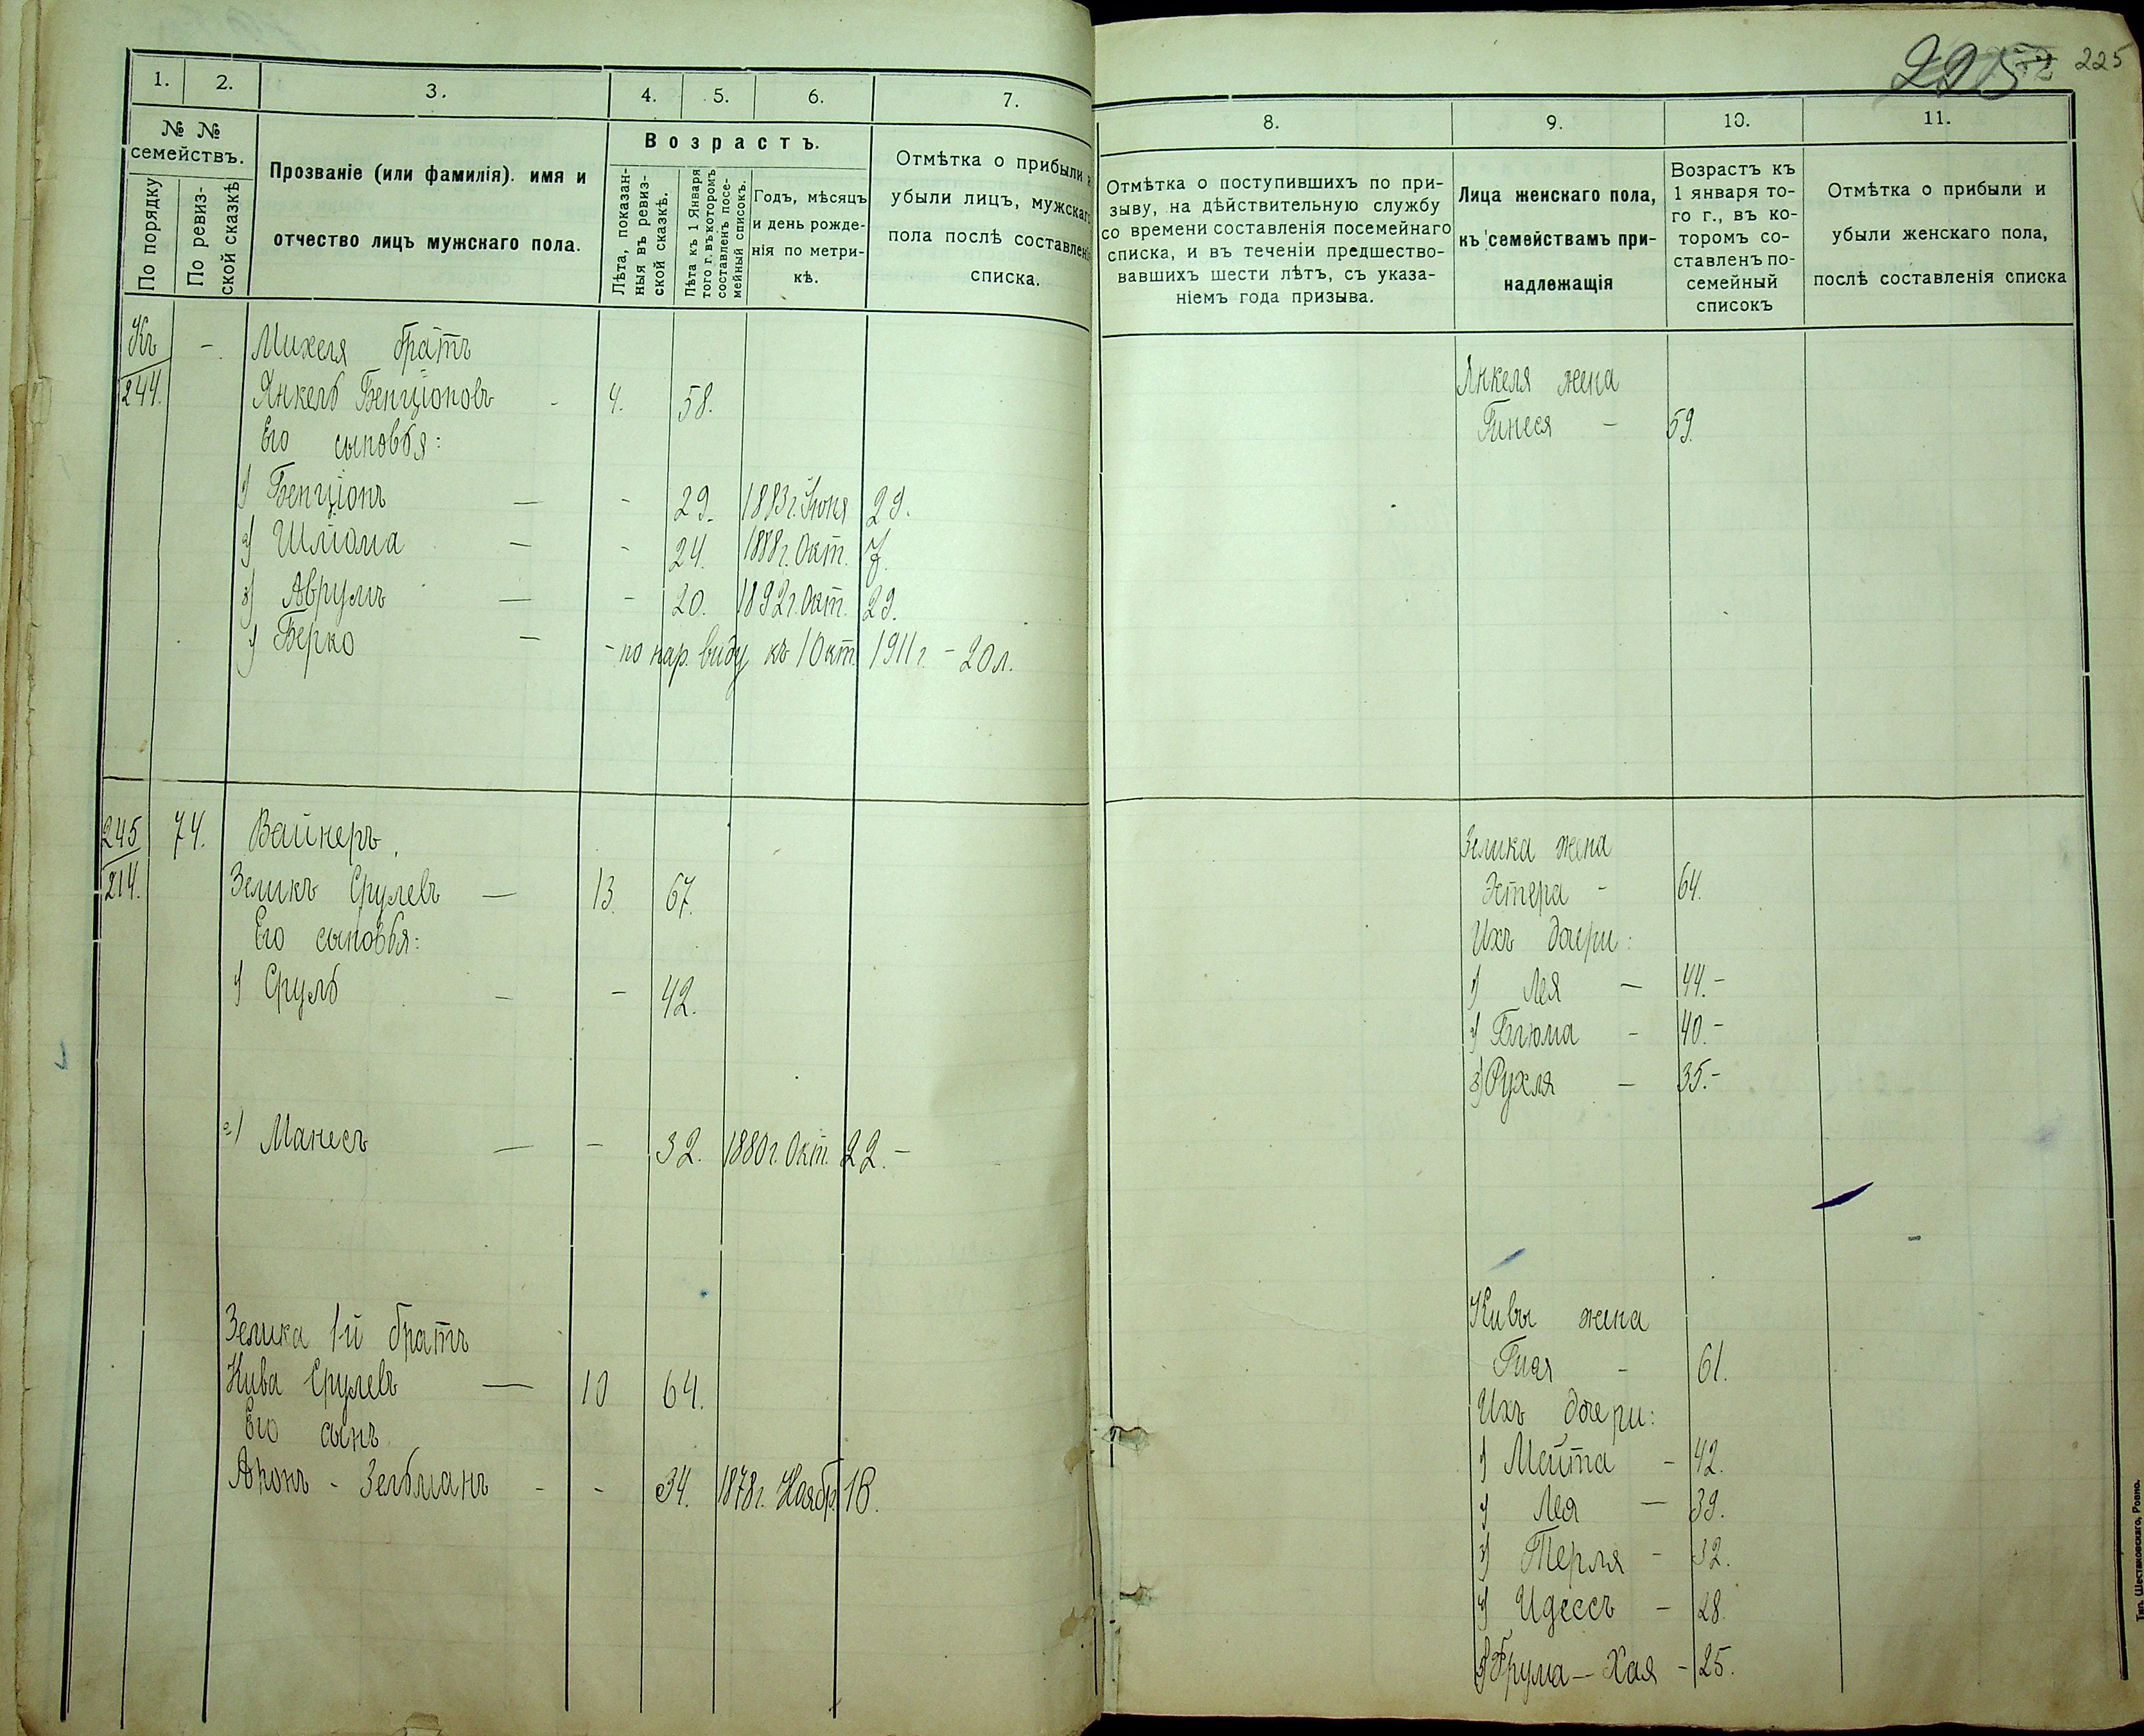 1.
2.
3.
4.
5.
6.
7.
№ №
семействъ.
По порядку
По ревиз-
ской сказкѣ
Прозваніе (или фамилія). имя и
отчество лицъ мужскаго пола.
Возрастъ.
Лѣта, показан-
ныя въ ревиз-
ской сказкѣ.
Лѣта къ 1 Января
того г. въ которомъ
составленъ посе-
мейный списокъ.
Годъ, мѣсяцъ
и день рожде-
нія по метри-
кѣ.
Отмѣтка о прибыли и
убыли лицъ, мужскаго
пола послѣ составленія
списка.
Къ - Михеля братъ
244. Янкель Бенціоновъ - 4. 58.
Его сыновья:
1) Бенціонъ — - 29. 1883 г. Іюня 29.
2) Шліома — - 24. 1888 г. Окт. 7.
3) Аврумъ — - 20. 1892 г. Окт. 29.
4) Берко — - по нар. виду къ 1 Окт. 1911 г. - 20 л.
245 74. Вайнеръ
214. Зеликъ Срулевъ — 13. 67.
Его сыновья:
1) Сруль - - 42.
2) Манесъ — - 32. 1880 г. Окт. 22. -
Зелика 1-й братъ
Кива Срулевъ — 10 64.
Его сынъ
Аронъ - Зельманъ - - 34. 1878 г. Ноябр. 18.
225
225
8.
9.
10.
11.
Отмѣтка о поступившихъ по при-
зыву, на дѣйствительную службу
со времени составленія посемейнаго
списка, и въ теченіи предшество-
вавшихъ шести лѣтъ, съ указа-
ніемъ года призыва.
Лица женскаго пола,
къ семействамъ при-
надлежащія
Возрастъ къ
1 января то-
го г., въ ко-
торомъ со-
ставленъ по-
семейный
списокъ
Отмѣтка о прибыли и
убыли женскаго пола,
послѣ составленія списка
Янкеля жена
Гинеся - 59.
Зелика жена
Эстера - 64.
Ихъ дочери:
1) Лея — 44. -
2) Блюма - 40. -
3) Рухля — 35. -
Кивы жена
Гися - 61.
Ихъ дочери:
1) Мейта - 42.
2) Лея — 39.
3) Перля - 32.
4) Идессъ - 28.
5) Фрума - Хая - 25.
Тип. Шестаковскаго, Ровно.